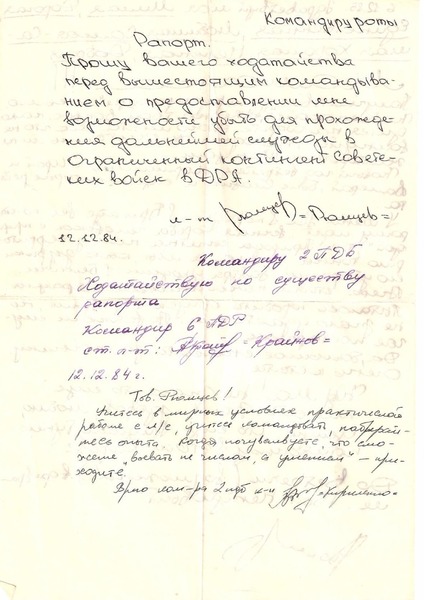 Командиру роты
Рапорт.
Прошу вашего ходатайства
перед вышестоящим командыва-
нием о предоставлении мне
возможности убыть для прохожде-
ния дальнейшей службы в
Ограниченный контингент Советс-
ких войск в ДРА.
л-т
12.12.84.
Командиру 2 ПДБ
Ходатайствую по существу
рапорта
Командир 6 ПДР
ст. л-т: =Крайнов=
12.12.84 г.
Тов.
Учитесь в мирных условиях практической
работе с л/с, учитесь командовать,
опыта. Когда почувствуете, что смо-
жете „воевать не числом, а умением" – при-
ходите.
Врио ком-ра 2 пдб к-н